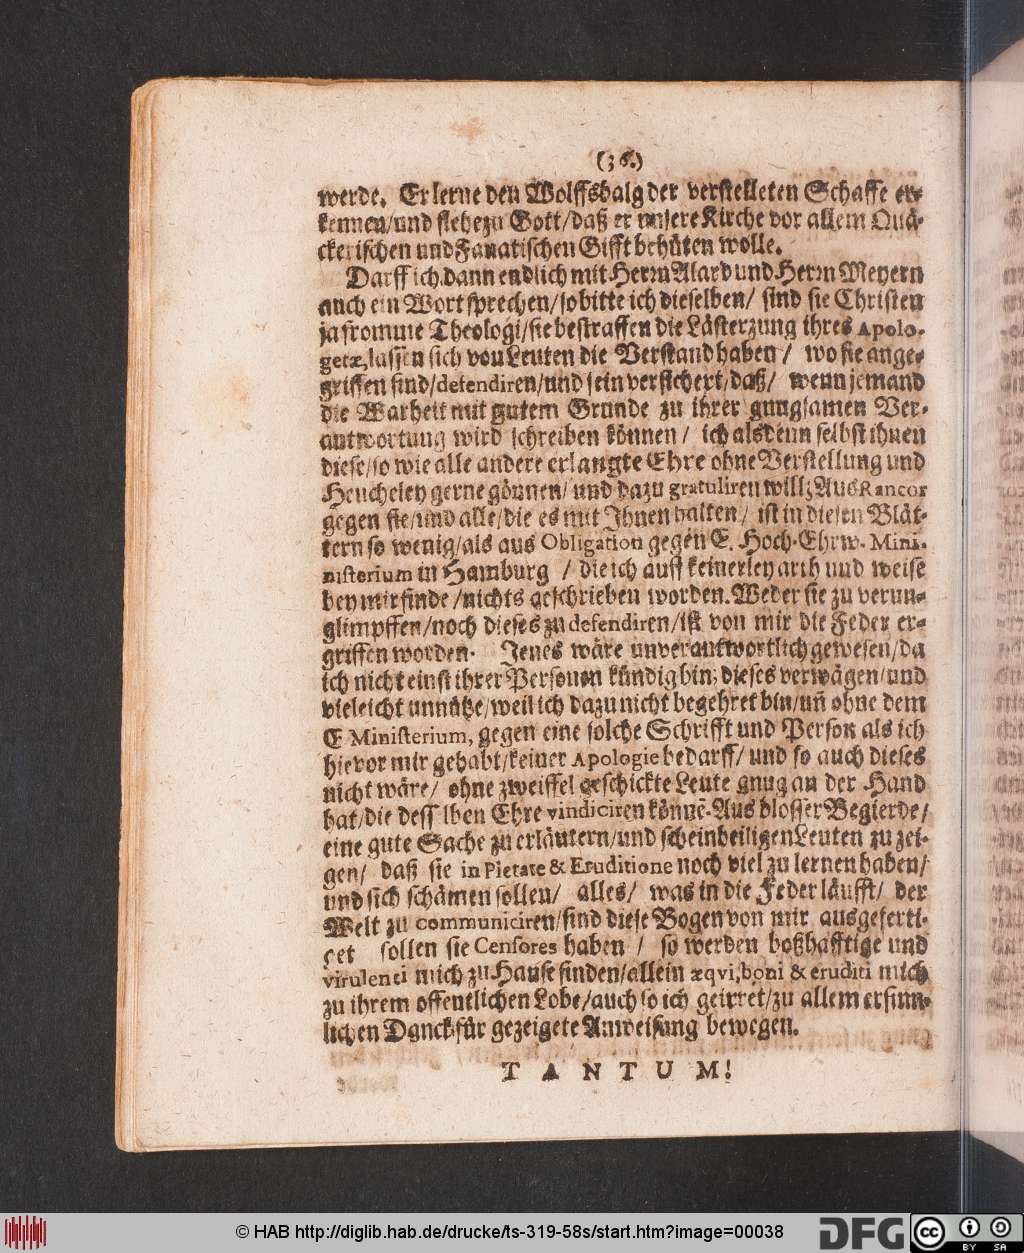 (36.)
werde. Er lerne den Wolffsbalg der verstelleten Schaffe er-
kennen/und flehe zu Gott/daß er unsere Kirche vor allem Quä-
ckerischen und Fanatischen Gifft behüten wolle.
Darff ich dann endlich mit Herrn Alard und Herrn Meyern
auch ein Wort sprechen/so bitte ich dieselben/ sind sie Christen
ja fromme Theologi/sie bestraffen die Lästerzung ihres Apolo-
getæ, lassen sich von Leuten die Verstand haben/ wo sie ange-
griffen sind/defendiren/und sein versichert/daß/ wenn jemand
die Warheit mit gutem Grunde zu ihrer gnugsamen Ver-
antwortung wird schreiben können/ ich alsdenn selbst ihnen
diese/so wie alle andere erlangte Ehre ohne Verstellung und
Heucheley gerne gönnen/ und dazu gratuliren will; Aus Rancor
gegen sie/und alle/die es mit Ihnen halten/ ist in diesen Blät-
tern so wenig/als aus Obligation gegen E. Hoch-Ehrw. Mini-
nisterium in Hamburg / die ich auff keinerley arth und weise
bey mir finde/nichts geschrieben worden. Weder sie zu verun-
glimpffen/noch dieses zu defendiren/ist von mir die Feder er-
griffen worden. Jenes wäre unverantwortlich gewesen/da
ich nicht einst ihrer Personen kündig bin; dieses verwägen/und
vieleicht unnütze/weil ich dazu nicht begehret bin/uñ ohne dem
E Ministerium, gegen eine solche Schrifft und Person als ich
hievor mir gehabt/keiner Apologie bedarff/ und so auch dieses
nicht wäre/ ohne zweiffel geschickte Leute gnug an der Hand
hat/die desselben Ehre vindiciren könnẽ. Aus blosser Begierde/
eine gute Sache zu erläutern/und scheinheiligen Leuten zu zei-
gen/ daß sie in Pietate & Eruditione noch viel zu lernen haben/
und sich schämen sollen/ alles/ was in die Feder läufft/ der
Welt zu communiciren/sind diese Bogen von mir ausgeferti-
get sollen sie Censores haben / so werden boßhafftige und
virulenti mich zu Hause finden/allein æqvi, boni & eruditi mich
zu ihrem offentlichen Lobe/auch so ich geirret/zu allem ersinn-
lichen Danck für gezeigete Anweisung bewegen.
TANTUM!
© HAB http://diglib.hab.de/drucke/ts-319-58s/start.htm?image=00038
DFG
cc
BY SA